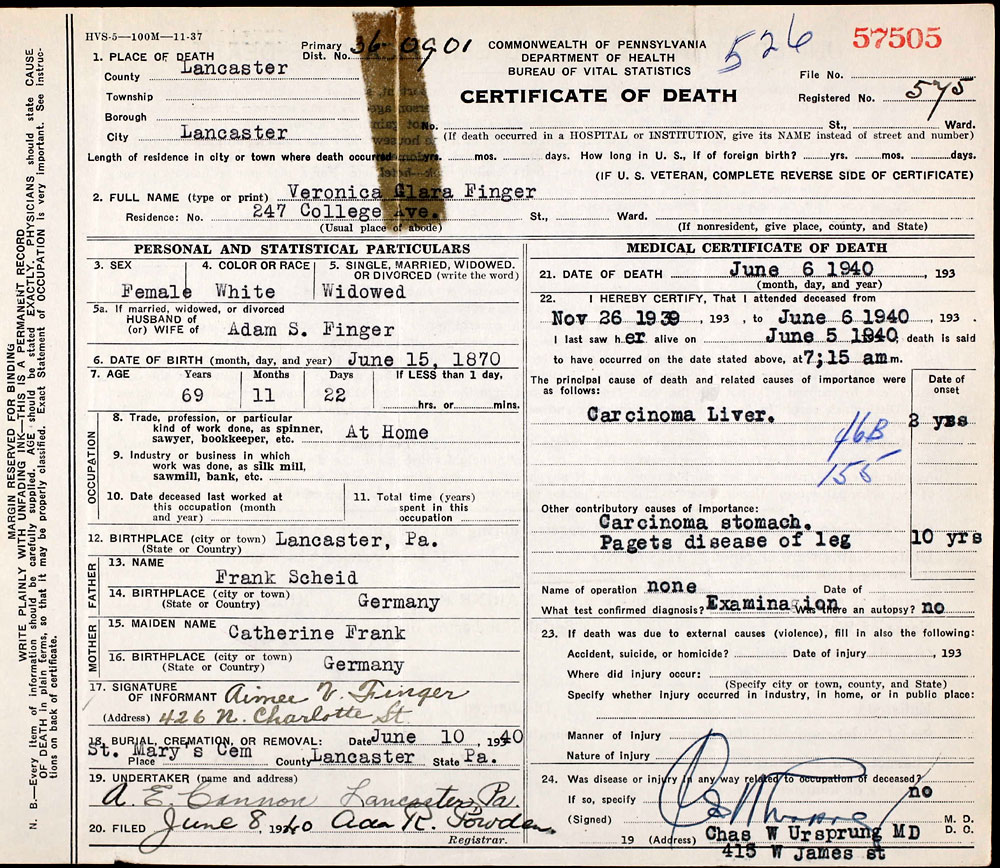 HVS-5—100M—11-37
Primary
Dist. No. 36-0901
COMMONWEALTH OF PENNSYLVANIA
DEPARTMENT OF HEALTH
BUREAU OF VITAL STATISTICS
526
57505
CERTIFICATE OF DEATH
File No.
Registered No. 575
1. PLACE OF DEATH
County Lancaster
Township
Borough
City Lancaster
No. St., Ward.
(If death occurred in a HOSPITAL or INSTITUTION, give its NAME instead of street and number)
Length of residence in city or town where death occurred yrs. mos. days. How long in U. S., if of foreign birth? yrs. mos. days.
(IF U. S. VETERAN, COMPLETE REVERSE SIDE OF CERTIFICATE)
2. FULL NAME (type or print) Veronica Clara Finger
Residence: No. 247 College Ave. St., Ward.
(Usual place of abode) (If nonresident, give place, county, and State)
PERSONAL AND STATISTICAL PARTICULARS
3. SEX 4. COLOR OR RACE 5. SINGLE, MARRIED, WIDOWED,
OR DIVORCED (write the word)
Female White Widowed
5a. If married, widowed, or divorced
HUSBAND of
(or) WIFE of Adam S. Finger
6. DATE OF BIRTH (month, day, and year) June 15, 1870
7. AGE Years Months Days If LESS than 1 day,
69 11 22 hrs. or mins.
OCCUPATION
8. Trade, profession, or particular
kind of work done, as spinner,
sawyer, bookkeeper, etc. At Home
9. Industry or business in which
work was done, as silk mill,
sawmill, bank, etc.
10. Date deceased last worked at
this occupation (month
and year)
11. Total time (years)
spent in this
occupation
12. BIRTHPLACE (city or town) Lancaster, Pa.
(State or Country)
FATHER
13. NAME
Frank Scheid
14. BIRTHPLACE (city or town)
(State or Country) Germany
MOTHER
15. MAIDEN NAME
Catherine Frank
16. BIRTHPLACE (city or town)
(State or Country) Germany
17. SIGNATURE
OF INFORMANT Aimee V. Finger
(Address) 426 N. Charlotte St
18. BURIAL, CREMATION, OR REMOVAL: Date June 10, 1940
St. Mary's Cem
Place County Lancaster State Pa.
19. UNDERTAKER (name and address)
A. E. Cannon Lancaster, Pa.
20. FILED June 8, 1940 Ada R. Fowden
Registrar.
MEDICAL CERTIFICATE OF DEATH
21. DATE OF DEATH June 6 1940, 193
(month, day, and year)
22. I HEREBY CERTIFY, That I attended deceased from
Nov 26 1939, 193 , to June 6 1940, 193 .
I last saw h er alive on June 5 1940, death is said
to have occurred on the date stated above, at 7;15 am m.
The principal cause of death and related causes of importance were
as follows:
Date of
onset
Carcinoma Liver. 2 yrs
46B
155
Other contributory causes of importance:
Carcinoma stomach.
Pagets disease of leg 10 yrs
Name of operation none Date of
What test confirmed diagnosis? Examination Was there an autopsy? no
23. If death was due to external causes (violence), fill in also the following:
Accident, suicide, or homicide? Date of injury , 193
Where did injury occur:
(Specify city or town, county, and State)
Specify whether injury occurred in industry, in home, or in public place:
Manner of injury
Nature of injury
24. Was disease or injury in any way related to occupation of deceased?
If so, specify no
(Signed) M. D.
D. O.
19 (Address) Chas W Ursprung MD
415 W James st
MARGIN RESERVED FOR BINDING
WRITE PLAINLY WITH UNFADING INK—THIS IS A PERMANENT RECORD
N. B.—Every item of information should be carefully supplied. AGE should be stated EXACTLY. PHYSICIANS should state CAUSE
OF DEATH in plain terms, so that it may be properly classified. Exact Statement of OCCUPATION is very important. See instruc-
tions on back of certificate.